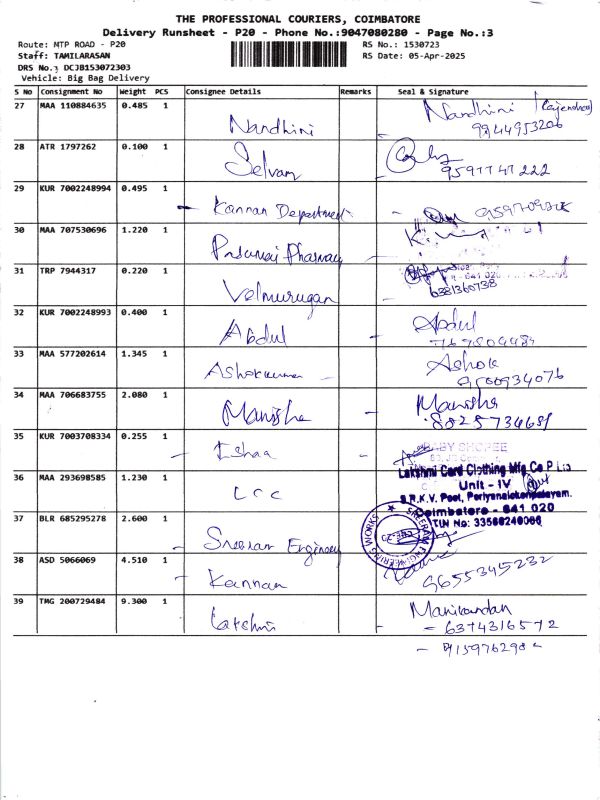 THE PROFESSIONAL COURIERS, COIMBATORE
Delivery Runsheet - P20 - Phone No.:9047080280 - Page No.:3
Route: MTP ROAD - P20 RS No.: 1530723
Staff: TAMILARASAN RS Date: 05-Apr-2025
DRS No.: DCJB153072303
Vehicle: Big Bag Delivery
S No Consignment No Weight PCS Consignee Details Remarks Seal & Signature
27 MAA 110884635 0.485 1 Nandhini Nandhini
9944953206
28 ATR 1797262 0.100 1 Selvam
9597747222
29 KUR 7002248994 0.495 1 Kannan Department
30 MAA 707530696 1.220 1 Pasumai Pharmacy
31 TRP 7944317 0.220 1 Velmurugan
6381360738
32 KUR 7002248993 0.400 1 Abdul Abdul
33 MAA 577202614 1.345 1 Ashokkumar Ashok
9500934076
34 MAA 706683755 2.080 1 Manisha Manisha
8825734681
35 KUR 7003708334 0.255 1 Ishaa
BABY SHOPEE
36 MAA 293698585 1.230 1 LCC
Lakshmi Card Clothing Mfg Co P Ltd
Unit - IV
S.R.K.V. Post, Periyanaickenpalayam.
Coimbatore - 641 020
TIN No: 33566240066
37 BLR 685295278 2.600 1 Sreeram Engineery
SREERAM ENGINEERING WORKS
CBE-29
38 ASD 5066069 4.510 1 Kannan
9655345232
39 TMG 200729484 9.300 1 Lakshmi Manikandan
- 6374316572
- 9159762982